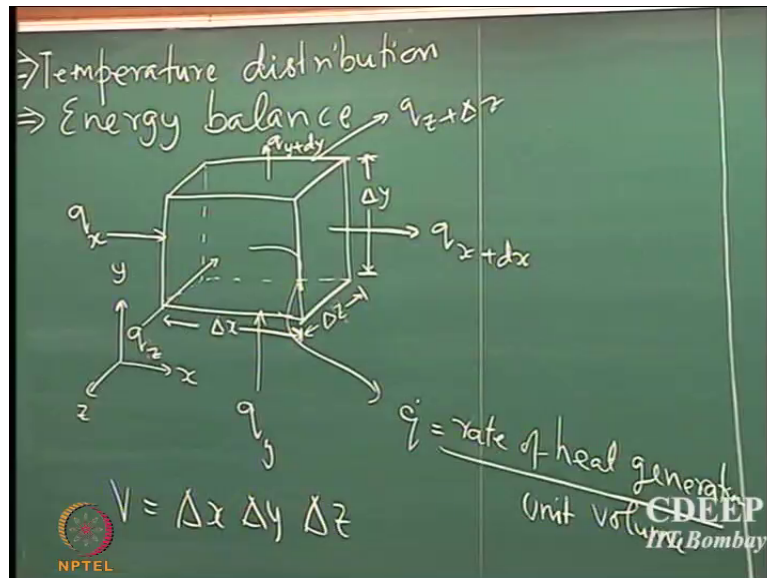 ⇒ Temperature distribution
⇒ Energy balance
q_y+dy
q_z+Δz
q_x
Δy
q_x+dx
y
Δx
Δz
q_z
x
z
q_y
q̇ = rate of heat generat
unit volume
V = Δx Δy Δz
NPTEL
CDEEP
IIT Bombay